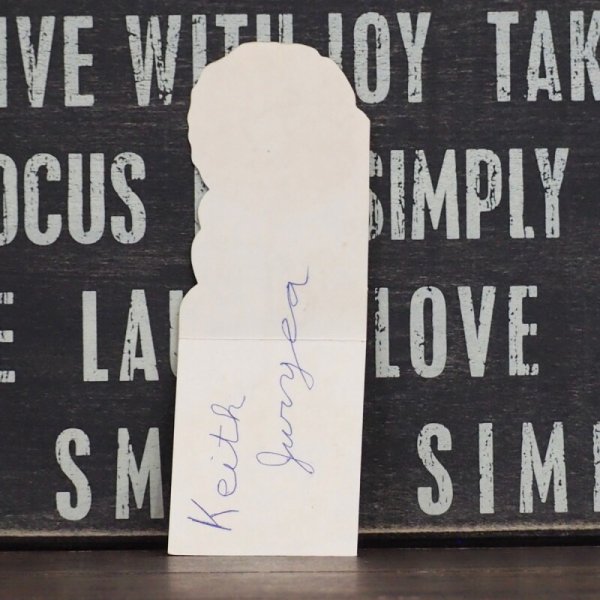 IVE WITH JOY TAK
OCUS SIMPLY
E LAU LOVE
SM SIM
Keith